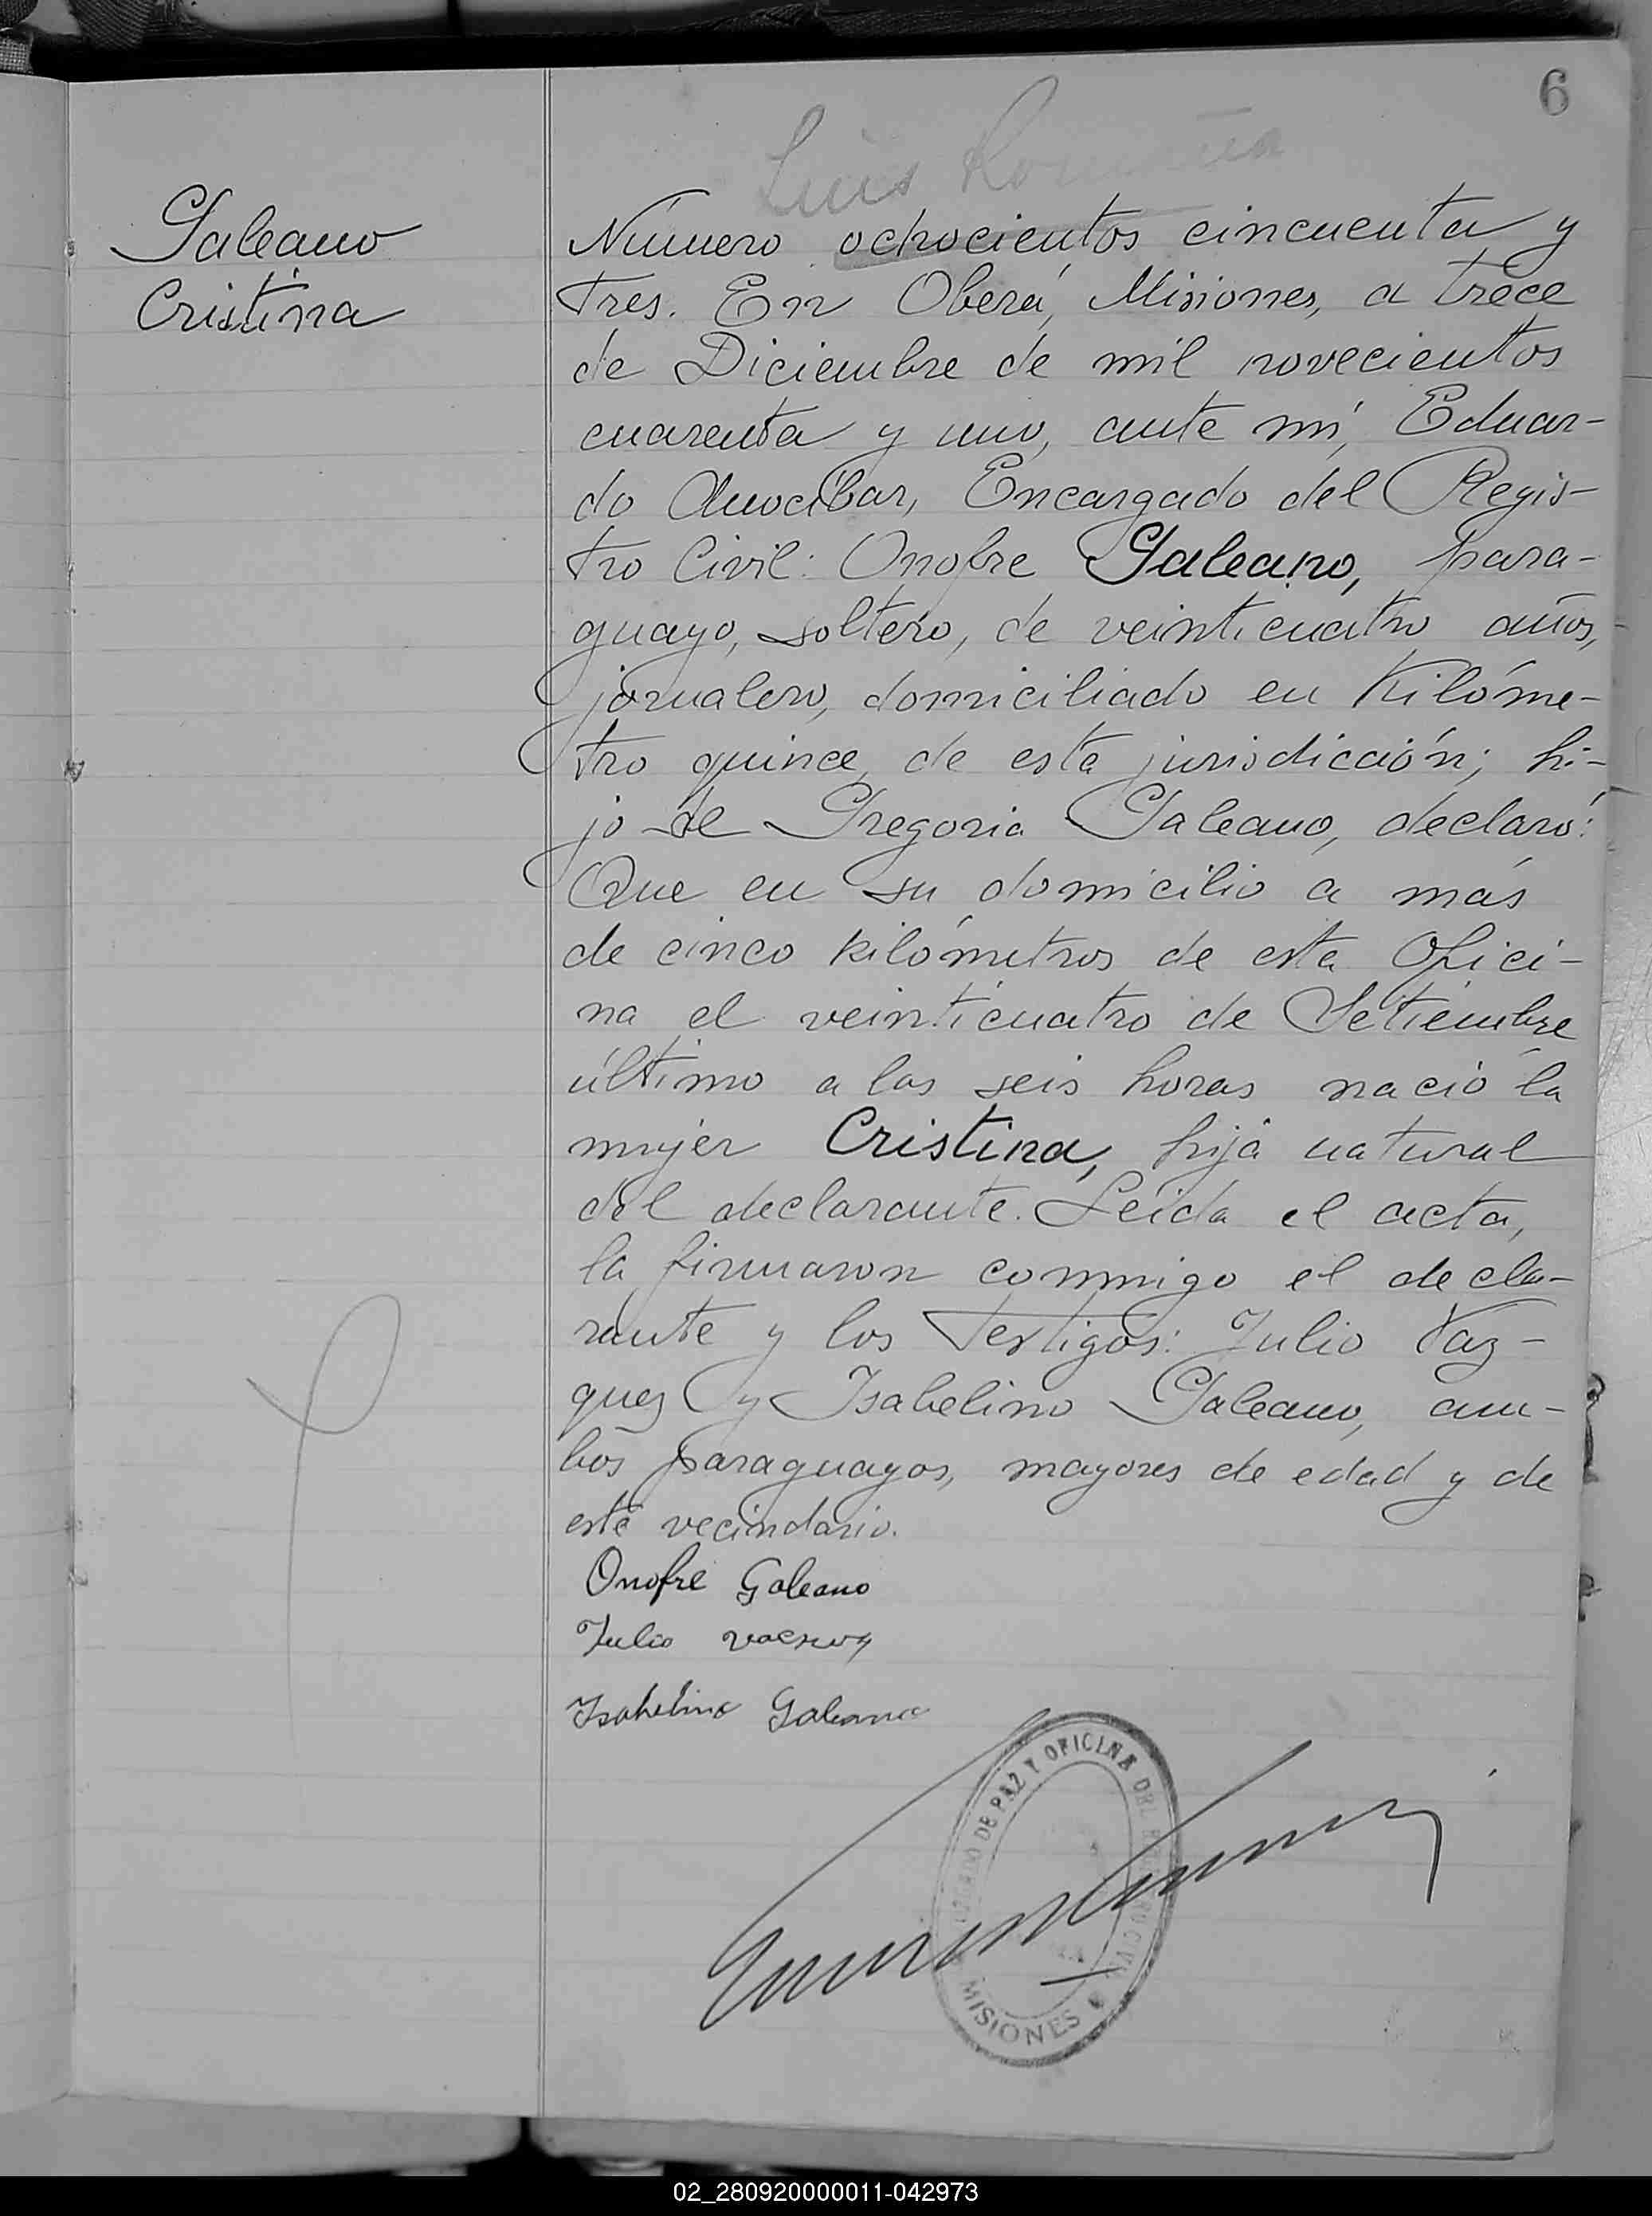 6
Luis
Galeano
Cristina
Número ochocientos cincuenta y
tres. En Oberá, Misiones, a trece
de Diciembre de mil novecientos
cuarenta y uno, ante mí, Eduar-
do Amocibar, Encargado del Regis-
tro Civil: Onofre Galeano, para-
guayo, soltero, de veinticuatro años,
jornalero, domiciliado en Kilóme-
tro quince, de esta jurisdicción; hi-
jo de Gregoria Galeano, declaró:
Que en su domicilio a más
de cinco kilómetros de esta Ofici-
na el veinticuatro de Setiembre
último a las seis horas nació la
mujer Cristina, hija natural
del declarante. Leída el acta,
la firmaron conmigo el decla-
rante y los testigos: Julio Vaz-
quez y Isabelino Galeano, am-
bos paraguayos, mayores de edad y de
este vecindario.
Onofre Galeano
Julio
Isabelino Galeano
JUZGADO DE PAZ Y OFICINA DEL REGISTRO CIVIL
MISIONES
02_280920000011-042973